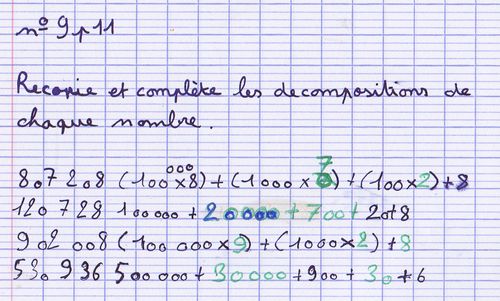 n° 9 p 11
Recopie et complète les decompositions de
chaque nombre.
807 208 (100 000 x 8) + (1 000 x 7) + (100 x 2) + 8
120 728 100 000 + 20 000 + 700 + 20 + 8
902 008 (100 000 x 9) + (1000 x 2) + 8
530 936 500 000 + 30 000 + 900 + 30 + 6